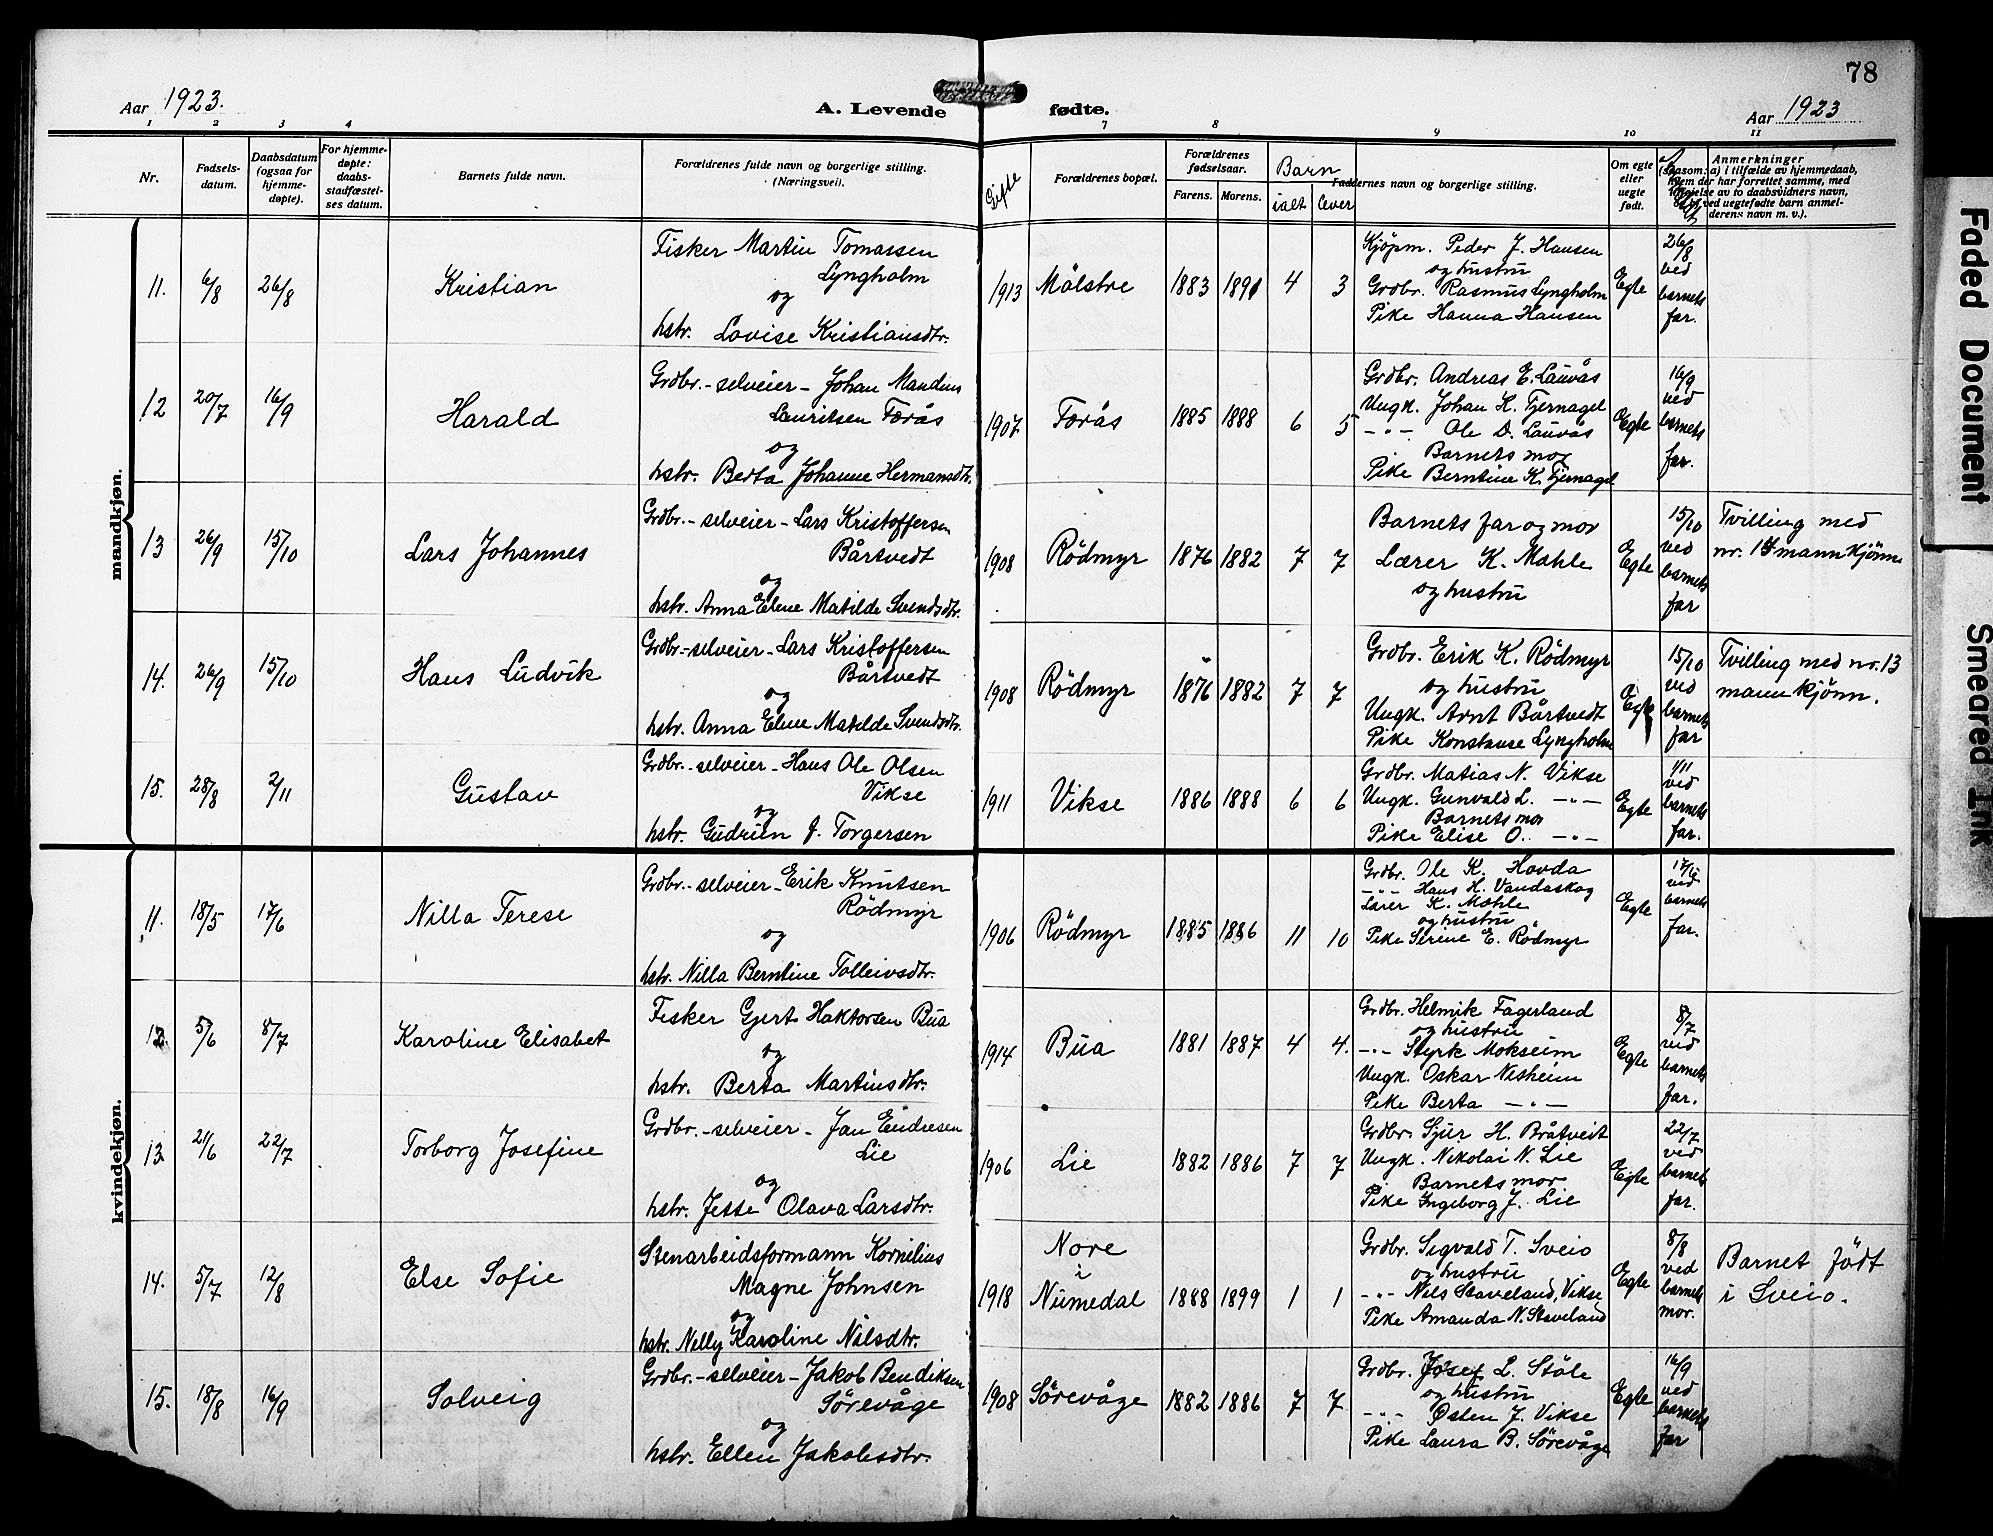 78
Aar 1923.
A. Levende fødte.
Aar 1923
1 2 3 4 7 8 9 10 11
Nr.
Fødsels-
datum.
Daabsdatum
(ogsaa for
hjemme-
døpte).
For hjemme-
døpte:
daabs-
stadfæstel-
ses datum.
Barnets fulde navn.
Forældrenes fulde navn og borgerlige stilling.
(Næringsvei).
Gifte
Forældrenes bopæl.
Forældrenes
fødselsaar.
Farens. Morens.
Barn
ialt lever
Faddernes navn og borgerlige stilling.
Om egte
eller
uegte
født.
Anmerkninger
(saasom: a) i tilfælde av hjemmedaab,
hvem der har forrettet samme, med
av to daabsvidners navn,
ved uegtefødte barn anmel-
derens navn m. v.).
mandkjøn.
11. 6/8 26/8 Kristian
Fisker Martin Tomassen
Lyngholm
og
hstr. Lovise Kristiansdtr.
1913 Mölstre 1883 1891 4 3
Kjöpm. Peder J. Hansen
og hustru
Grdbr. Rasmus Lyngholm
Pike Hanna Hansen
Egte
26/8
ved
barnets
far.
12 20/7 16/9 Harald
Grdbr.-selveier- Johan Mandius
Lauritsen Torås
og
hstr. Berta Johanne Hermansdtr.
1907 Torås 1885 1888 6 5
Grdbr. Andreas E. Lauvås
Ungk. Johan K. Tjernagel
-"- Ole D. Lauvås
Barnets mor
Pike Berntine K. Tjernagel
Egte
16/9
ved
barnets
far.
13 26/9 15/10 Lars Johannes
Grdbr.-selveier- Lars Kristoffersen
Bårtvedt
og
hstr. Anna Elene Matilde Svendsdtr.
1908 Rödmyr 1876 1882 7 7
Barnets far og mor
Lærer K. Mæhle
og hustru
Egte
15/10
ved
barnets
far
Tvilling med
nr. 14 mannkjönn
14. 26/9 15/10 Hans Ludvik
Grdbr.-selveier- Lars Kristoffersen
Bårtvedt
og
hstr. Anna Elene Matilde Svendsdtr.
1908 Rödmyr 1876 1882 7 7
Grdbr. Erik K. Rödmyr
og hustru
Ungk. Arnt Bårtvedt
Pike Konstanse Lyngholm
Egte
15/10
ved
barnets
far
Tvilling med nr. 13
mannkjönn.
15. 28/8 2/11 Gustav
Grdbr.-selveier- Hans Ole Olsen
Vikse
og
hstr. Gudrun J. Torgersen
1911 Vikse 1886 1888 6 6
Grdbr. Matias N. Vikse
Ungk. Gunvald L. -"-
Barnets mor
Pike Elise O. -"-
Egte
1/11
ved
barnets
far.
kvindekjøn.
11. 18/5 17/6 Nilla Terese
Grdbr.-selveier- Erik Knutsen
Rödmyr
og
hstr. Nilla Berntine Tolleivsdtr.
1906 Rödmyr 1885 1886 11 10
Grdbr. Ole K. Hovda
-"- Hans H. Vandaskog
Lærer K. Mæhle
og hustru
Pike Serine E. Rödmyr
Egte
17/6
ved
barnets
far.
12. 5/6 8/7 Karoline Elisabet
Fisker Gjert Haktorsen Bua
og
hstr. Berta Martinsdtr.
1914 Bua 1881 1887 4 4.
Grdbr. Helmik Fagerland
og hustru
-"- Styrk Mokseim
Ungk. Oskar Nesheim
Pike Berta -"-
Egte
8/7
ved
barnets
far.
13. 21/6 22/7 Torborg Josefine
Grdbr.-selveier- Jan Eindresen
Lie
og
hstr. Jesse Olava Larsdtr.
1906 Lie 1882 1886 7 7
Grdbr. Sjur H. Bråtveit
Ungk. Nikolai N. Lie
Barnets mor
Pike Ingeborg J. Lie
Egte
22/7
ved
barnets
far.
14. 5/7 12/8 Else Sofie
Stenarbeidsformann Kornelius
Magne Johnsen
og
hstr. Nelly Karoline Nilsdtr.
1918 Nore
i
Numedal 1888 1899 1 1
Grdbr. Sigvald T. Sveio
og hustru
-"- Nils Staveland, Vikse
Pike Amanda N. Staveland
Egte
8/8
ved
barnets
mor.
Barnet födt
i Sveio.
15. 18/8 16/9 Solveig
Grdbr.-selveier- Jakob Bendiksen
Sörevåge
og
hstr. Ellen Jakobsdtr.
1908 Sörevåge 1882 1886 7 7
Grdbr. Josef L. Ståle
og hustru
-"- Østen J. Vikse
Pike Laura B. Sörevåge
Egte
16/9
ved
barnets
far
Faded Document
Smeared Ink